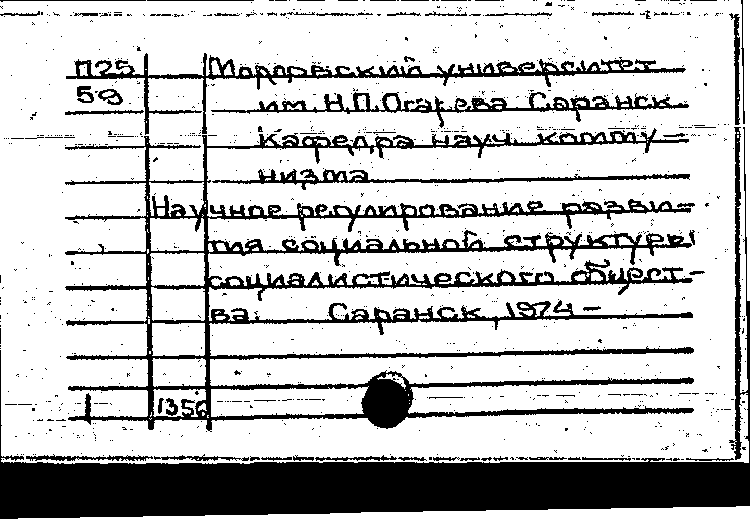 П25 Мордовский университет
59 им. Н.П.Огарева Саранск
Кафедра науч. комму-
низма
Научное регулирование разви-
тия социальной структуры
социалистического общест-
ва. Саранск, 1974-
1 1356